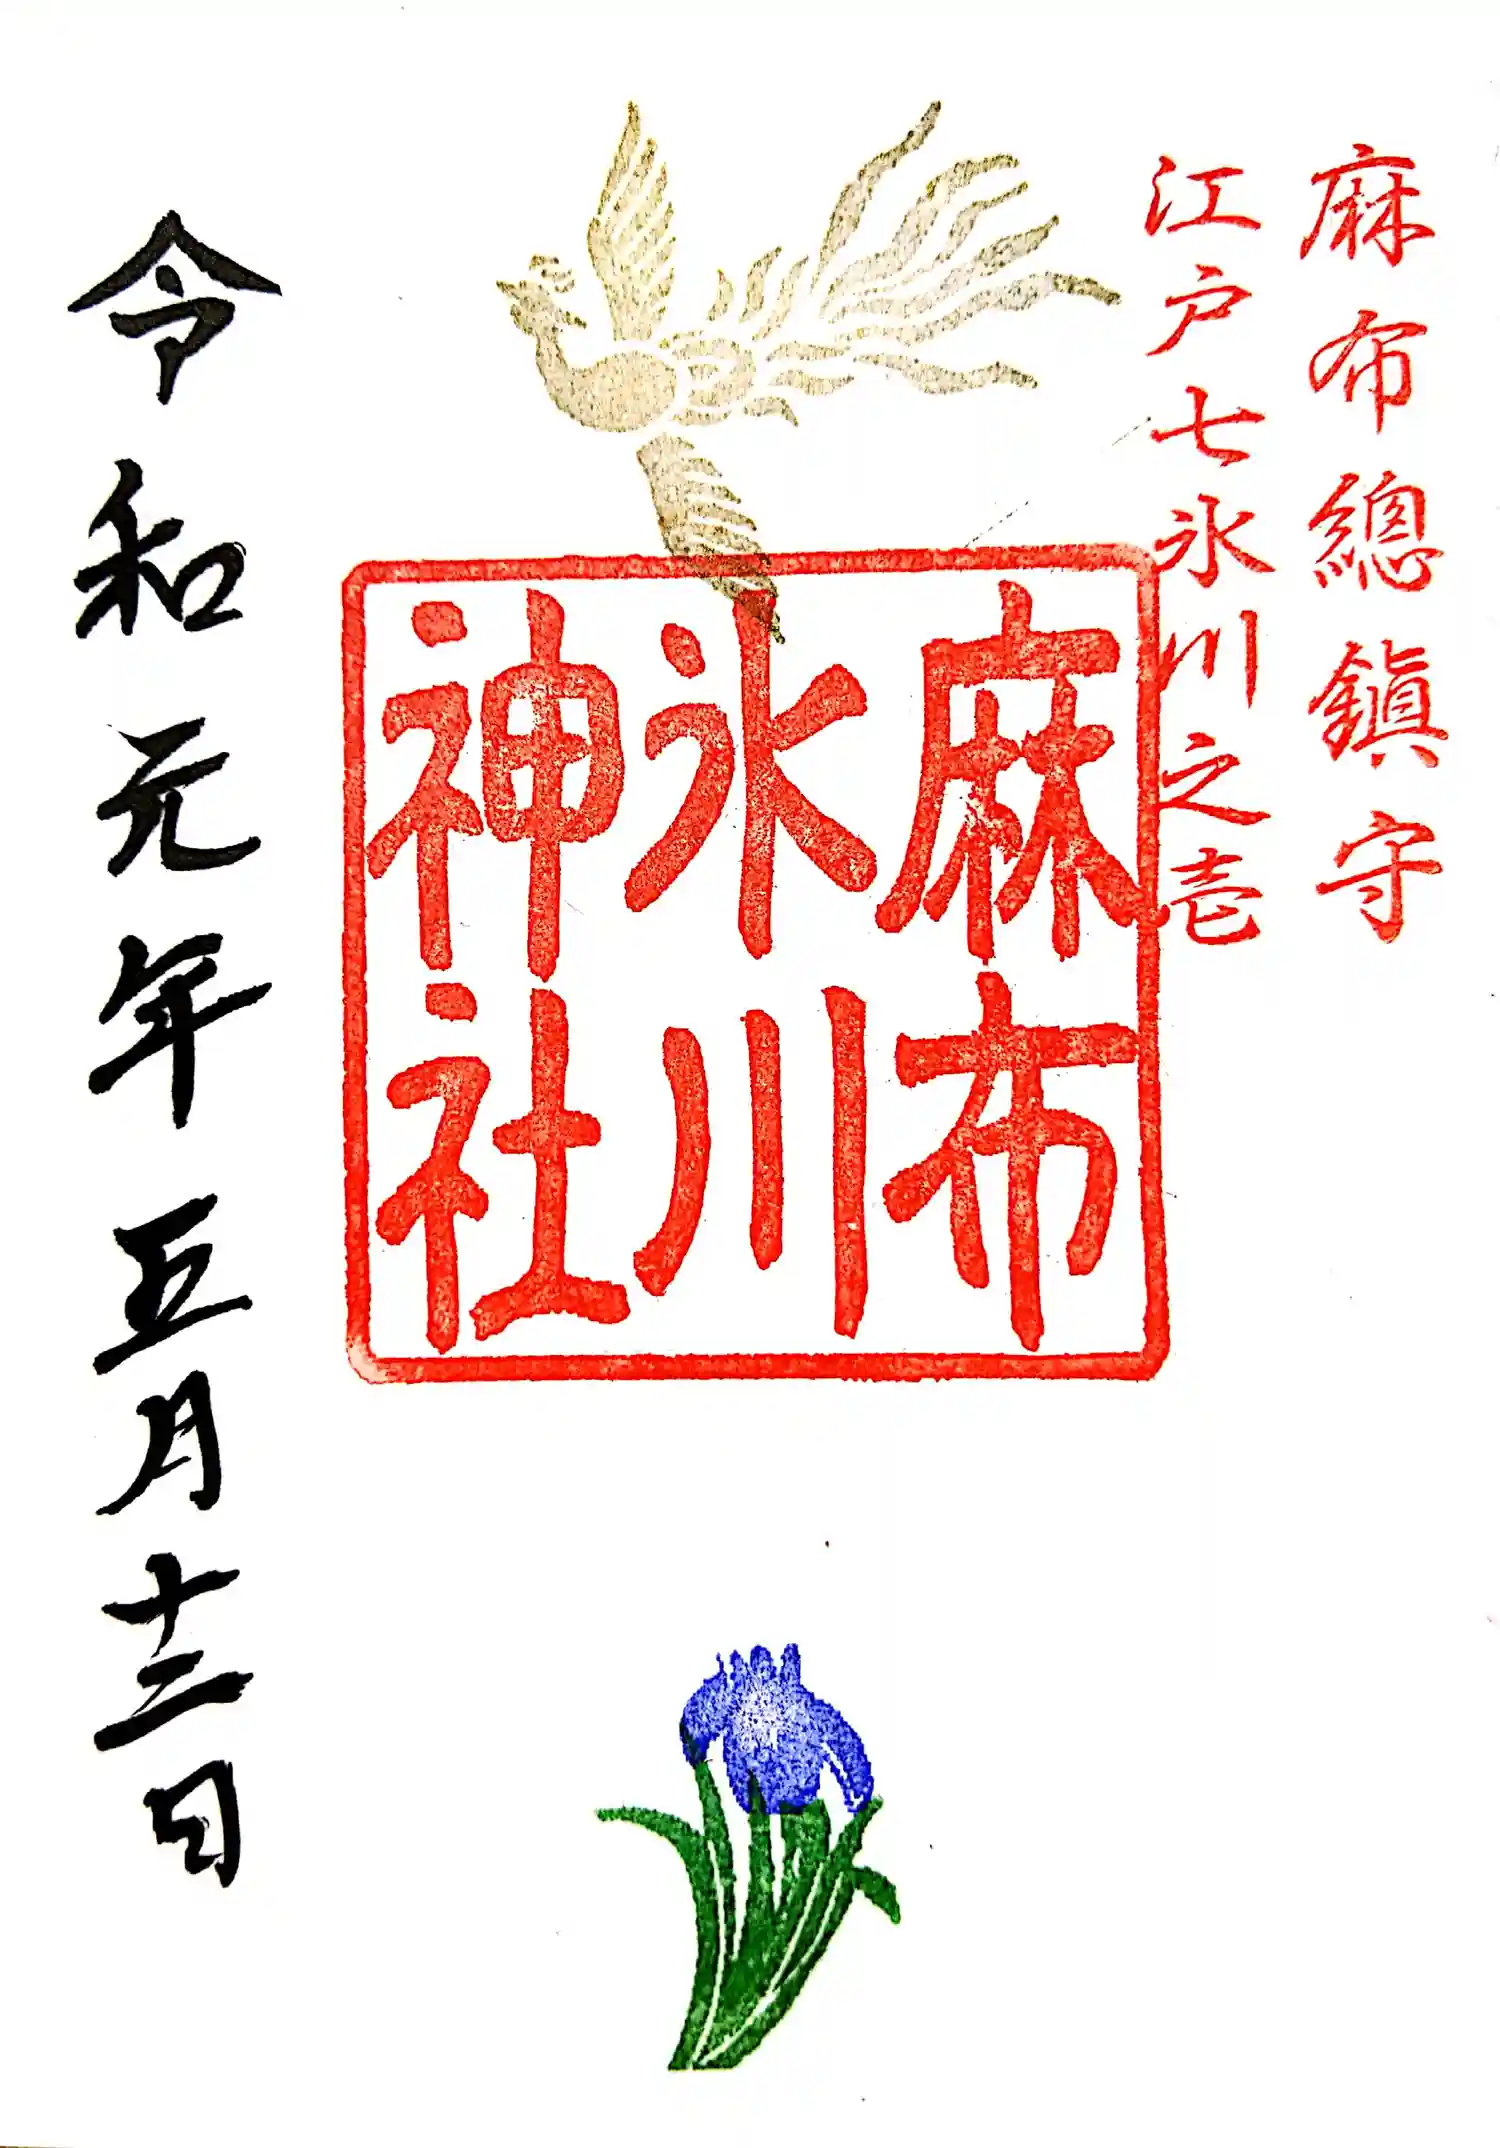 麻布總鎮守
江戸七氷川之壱
麻布
氷川
神社
令和元年五月十二日